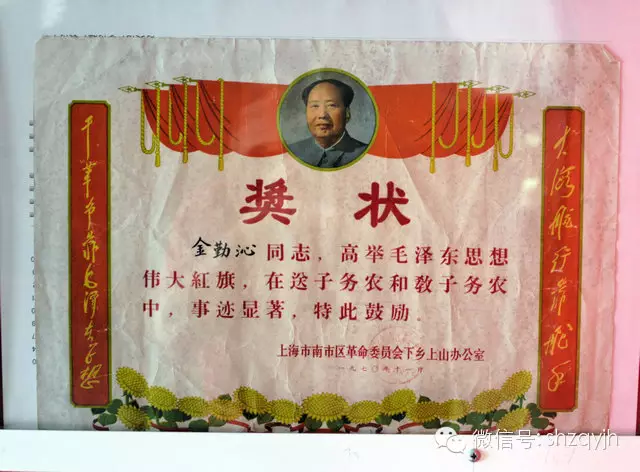 大海航行靠舵手
奖状
金勤沁同志，高举毛泽东思想
伟大红旗，在送子务农和教子务农
中，事迹显著，特此鼓励．
上海市南市区革命委员会下乡上山办公室
一九七〇年十一月
干革命靠毛泽东思想
微信号: shzqyjh